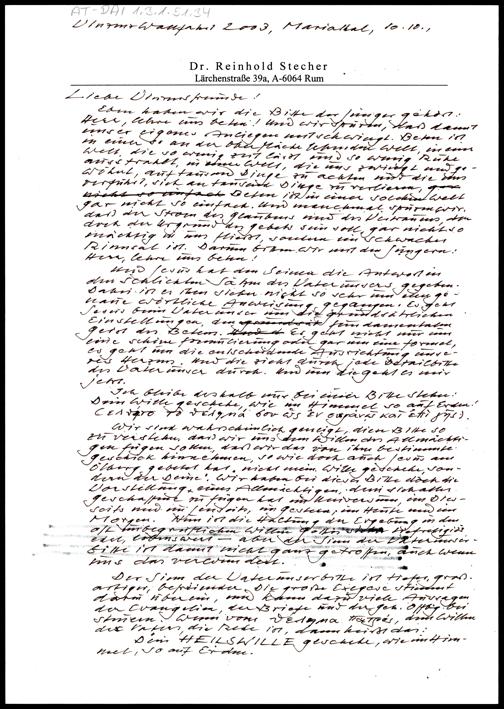 AT-DAI 1.3.1.S1.34
2003, Mariathal, 10.10.,
Dr. Reinhold Stecher
Lärchenstraße 39a, A-6064 Rum
Liebe
Eben haben wir die Bitte der Jünger gehört:
Herr, lehre uns beten! Und wir spüren, daß damit
unser eigenes Anliegen mitschwingt. Beten ist
in einer so an der Oberfläche lebenden Welt, in einer
Welt, die so wenig Zeit läßt, und so wenig Ruhe
ausstrahlt, in einer Welt, die uns
auf tausend Dinge zu achten und die uns
verführt, sich an tausend Dinge zu verlieren,
nicht so einfach Beten ist in einer solchen Welt
gar nicht so einfach. Und manchmal spüren wir,
daß der Strom des Glaubens und des Vertrauens, der
doch der Urgrund des Gebets sein soll, gar nicht so
mächtig in uns fließt, sondern ein schwaches
Rinnsal ist. Darum bitten wir mit den Jüngern:
Herr, lehre uns beten!
Und Jesus hat den Seinen die Antwort in
den schlichten Sätzen des Vaterunsers gegeben.
Dabei ist es Ihm sicher nicht so sehr um eine ge-
naue wörtliche Anweisung gegangen. Es geht
Jesus beim Vaterunser um die grundsätzlichen
Einstellungen, fundamentalen
des Betens. Es geht nicht um
eine schöne Formulierung oder gar um eine Formel,
es geht um die entscheidende Ausrichtung unse-
res Herzens. Und die zieht durch jede
des Vaterunser durch. Und um die geht es mir
jetzt.
Ich bleibe deshalb nur bei einer Bitte stehen:
Dein Wille geschehe, wie im Himmel so auf Erden!
Wir sind wahrscheinlich geneigt, diese Bitte so
zu verstehen, daß wir uns dem Willen des Allmächti-
gen fügen sollen, daß wir das von ihm bestimmte
Geschick hinnehmen, so wie doch auch Jesus am
Ölberg gebetet hat: nicht mein Wille geschehe, son-
dern der Deine! Wir haben bei dieser Bitte doch die
Vorstellung eines Allmächtigen, dem sich alles
Geschaffene zu fügen hat im Universum, im Dies-
seits und im Jenseits, im Gestern, im Heute und im
Morgen. Nun ist die Haltung der Ergebung in den
oft unbegreiflichen Willen Gottes
edel, lobenswert – aber der Sinn der Vaterunser-
bitte ist damit nicht ganz getroffen, auch wenn
uns das verwundert.
Der Sinn der Vaterunserbitte ist tiefer, groß-
artiger, befreiender. Die große Exegese stimmt
darin überein, und kann dazu viele Aussagen
der Evangelien, der Briefe und der geh. Offbg. bei-
steuern. Wenn vom dem Willen
des Vaters, die Rede ist, dann heißt das:
Dein HEILSWILLE geschehe, wie im Him-
mel, so auf Erden.